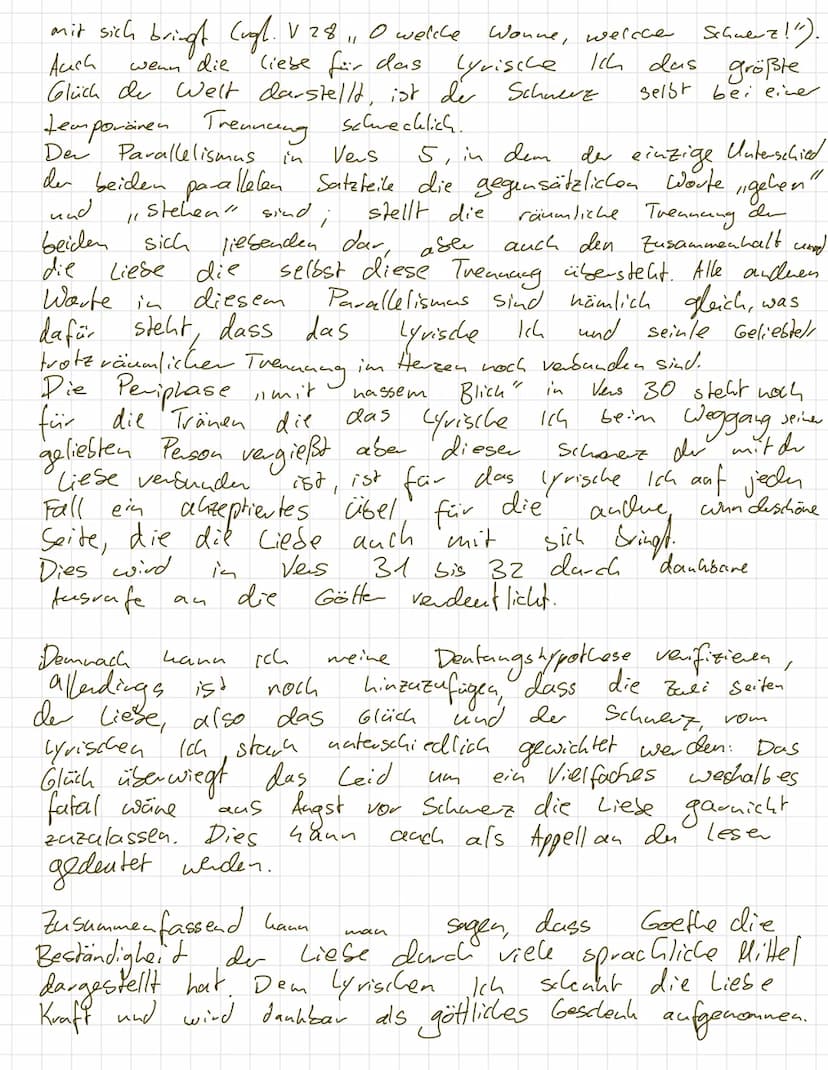 mit sich bringt (vgl. V 28 „O welche Wonne, welcher Schmerz!").
Auch wenn die Liebe für das Lyrische Ich das größte
Glück der Welt darstellt, ist der Schmerz selbst bei einer
temporären Trennung schrecklich.
Der Parallelismus in Vers 5, in dem der einzige Unterschied
der beiden parallelen Satzteile die gegensätzlichen Worte „gehen"
und „stehen" sind, stellt die räumliche Trennung der
beiden sich liebenden dar, aber auch den Zusammenhalt und
die Liebe die selbst diese Trennung übersteht. Alle anderen
Worte in diesem Parallelismus sind nämlich gleich, was
dafür steht, dass das Lyrische Ich und sein/e Geliebte/r
trotz räumlicher Trennung im Herzen noch verbunden sind.
Die Periphase „mit nassem Blick" in Vers 30 steht noch
für die Tränen die das Lyrische Ich beim Weggang seiner
geliebten Person vergießt aber dieser Schmerz der mit der
Liebe verbunden ist, ist für das lyrische Ich auf jeden
Fall ein akzeptiertes Übel für die andere, wunderschöne
Seite, die die Liebe auch mit sich bringt.
Dies wird in Vers 31 bis 32 durch dankbare
Ausrufe an die Götter verdeutlicht.
Demnach kann ich meine Deutungshypothese verifizieren,
Allerdings ist noch hinzuzufügen, dass die zwei Seiten
der Liebe, also das Glück und der Schmerz, vom
Lyrischen Ich stark unterschiedlich gewichtet werden: Das
Glück überwiegt das Leid um ein Vielfaches weshalb es
fatal wäre aus Angst vor Schmerz die Liebe garnicht
zuzulassen. Dies kann auch als Appell an den Leser
gedeutet werden.
Zusammenfassend kann man sagen, dass Goethe die
Beständigkeit der Liebe durch viele sprachliche Mittel
dargestellt hat. Dem Lyrischen Ich schenkt die Liebe
Kraft und wird dankbar als göttliches Geschenk aufgenommen.